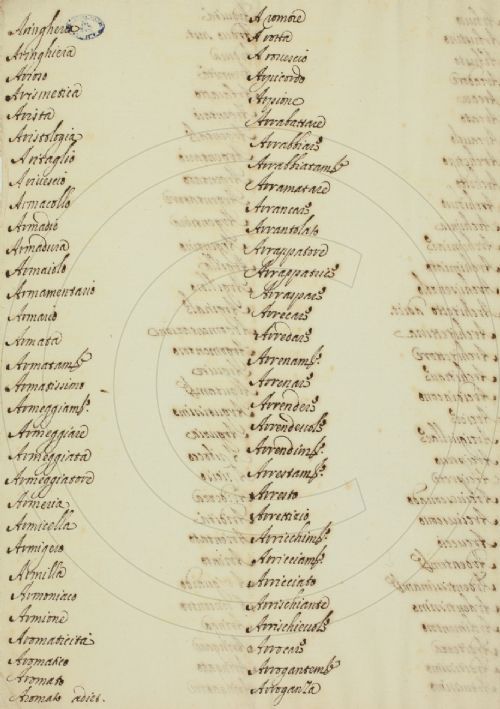 Aringhera
Aringhiera
Arioso
Arismetica
Arista
Aristologia
Aritaglio
Arivescio
Armacollo
Armadio
Armadura
Armaiolo
Armamentario
Armario
Armata
Armatamᵗᵉ
Armatissimo
Armeggiamᵗᵒ
Armeggiare
Armeggiata
Armeggiatore
Armeria
Armicella
Armigero
Armilla
Armoniaco
Armione
Aromaticità
Aromatico
Aromato
Aromato adiet.
Aromore
Arrota
Arovescio
Arpicordo
Arpione
Arrabattare
Arrabbiarsi
Arrabbiatamᵗᵉ
Arramatare
Arrancare
Arrappatore
Arraspare
Arrecare
Arredare
Arrenamᵗᵒ
Arrenare
Arrendersi
Arrendevole
Arrendimᵗᵒ
Arrestamᵗᵒ
Arresto
Arrettizio
Arricchimᵗᵒ
Arricciamᵗᵒ
Arricciato
Arrischiante
Arrischievole
Arrocare
Arrogantemᵗᵉ
Arroganza